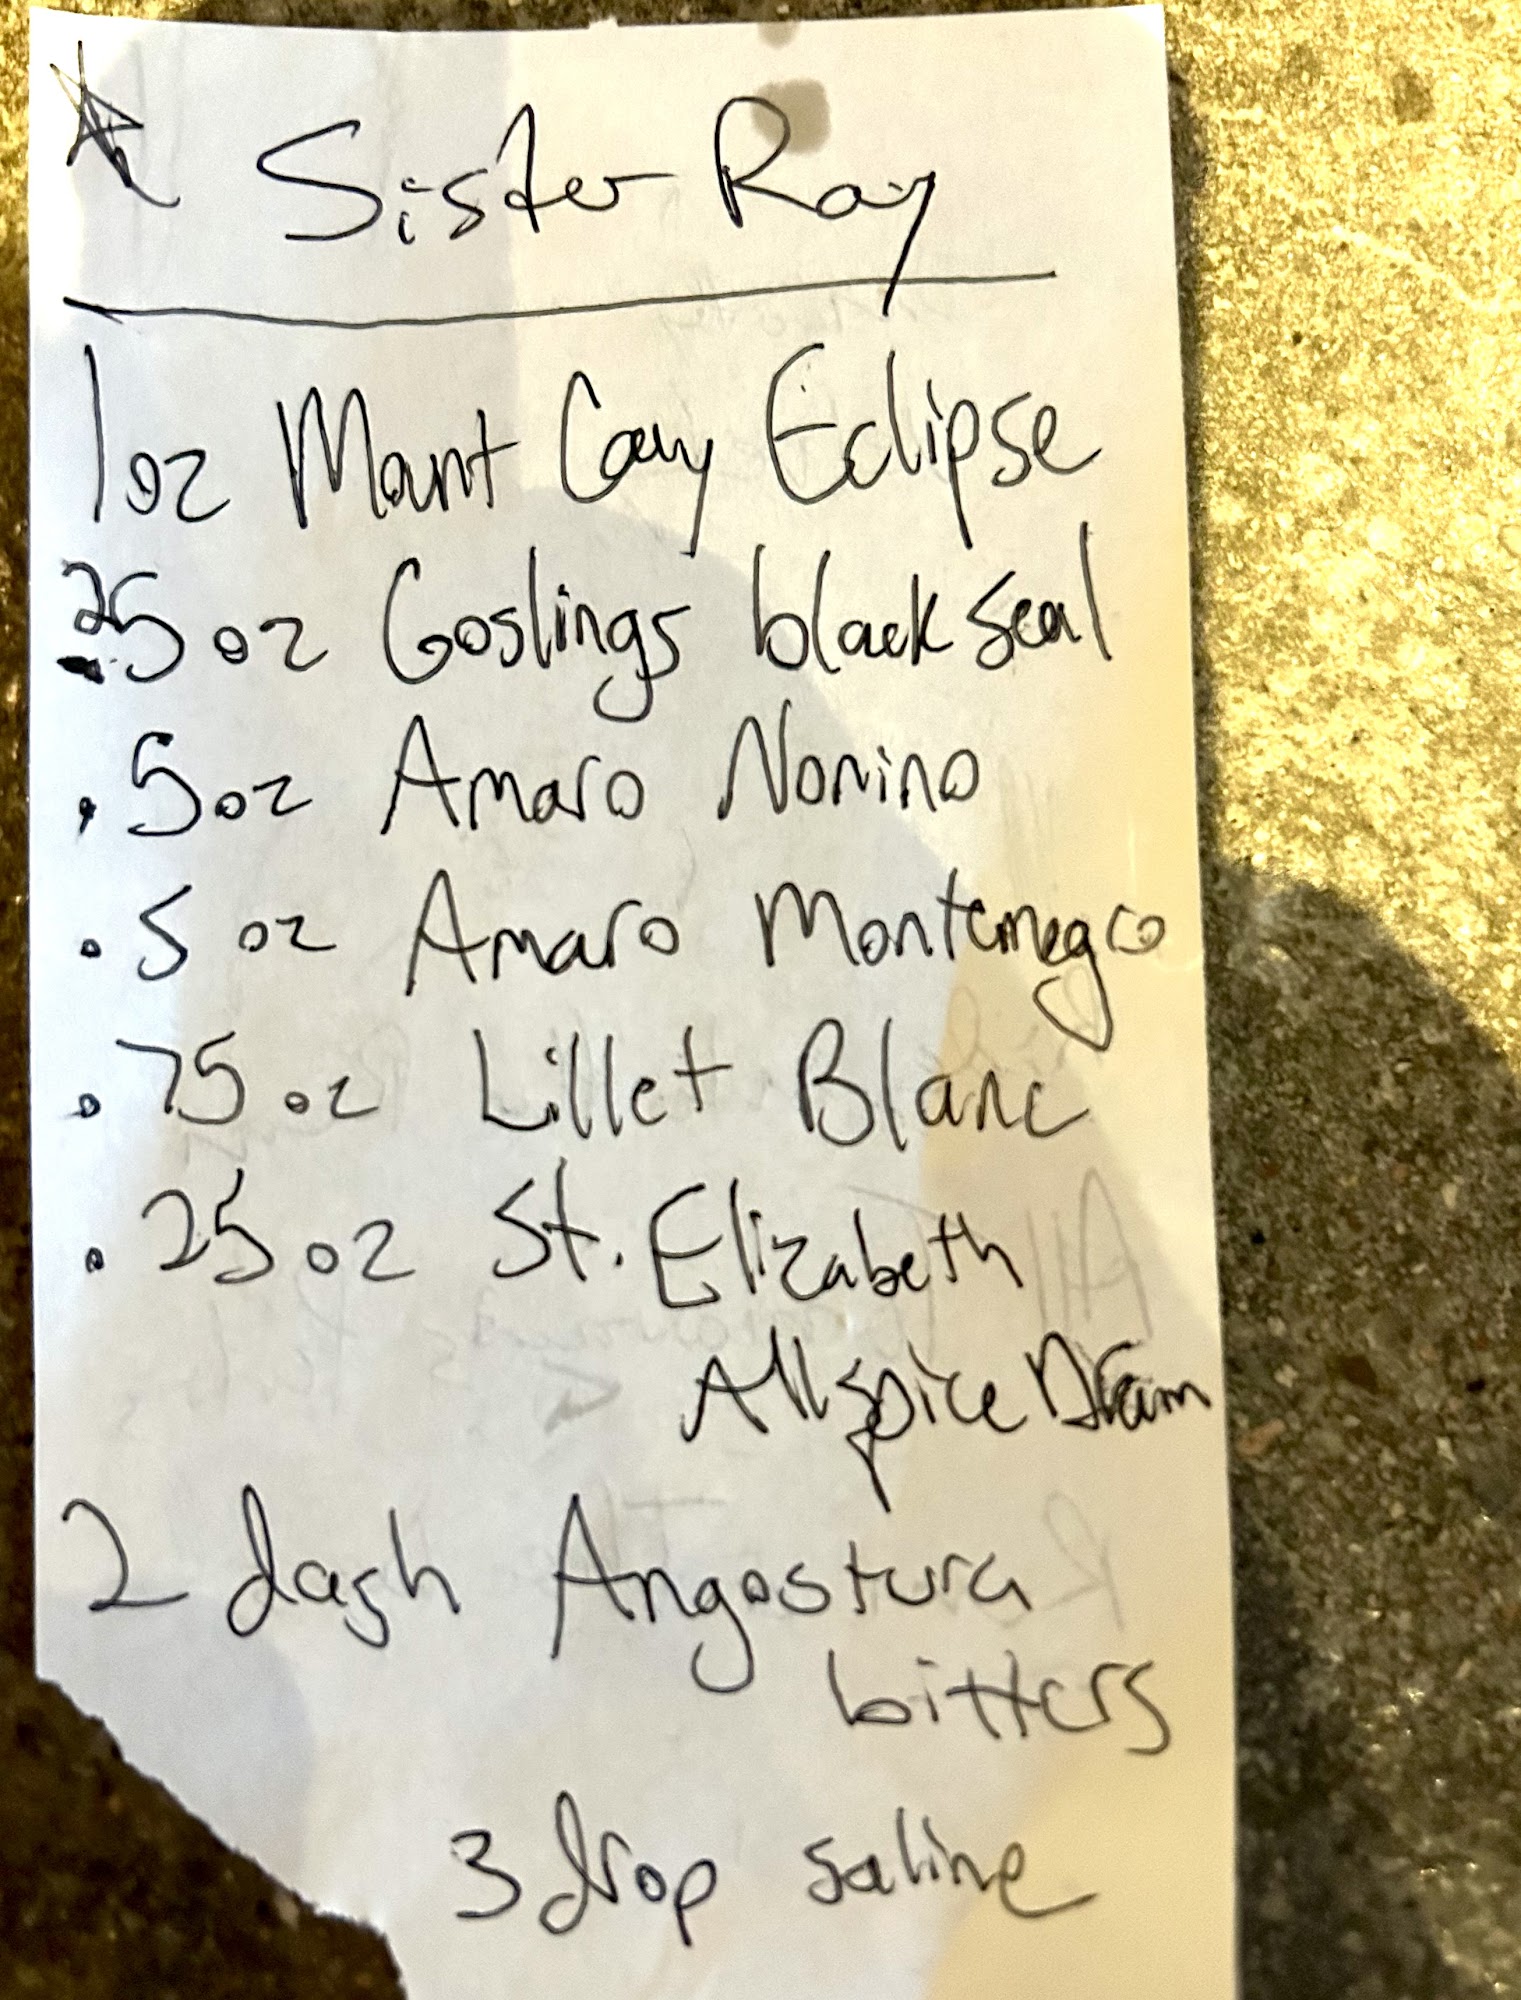 Sister Ray
1oz Mount Gay Eclipse
.25 oz Goslings black seal
.5oz Amaro Nonino
.5 oz Amaro Montenegro
.75 oz Lillet Blanc
.25 oz St. Elizabeth
Allspice Dram
2 dash Angostura
bitters
3 drop saline